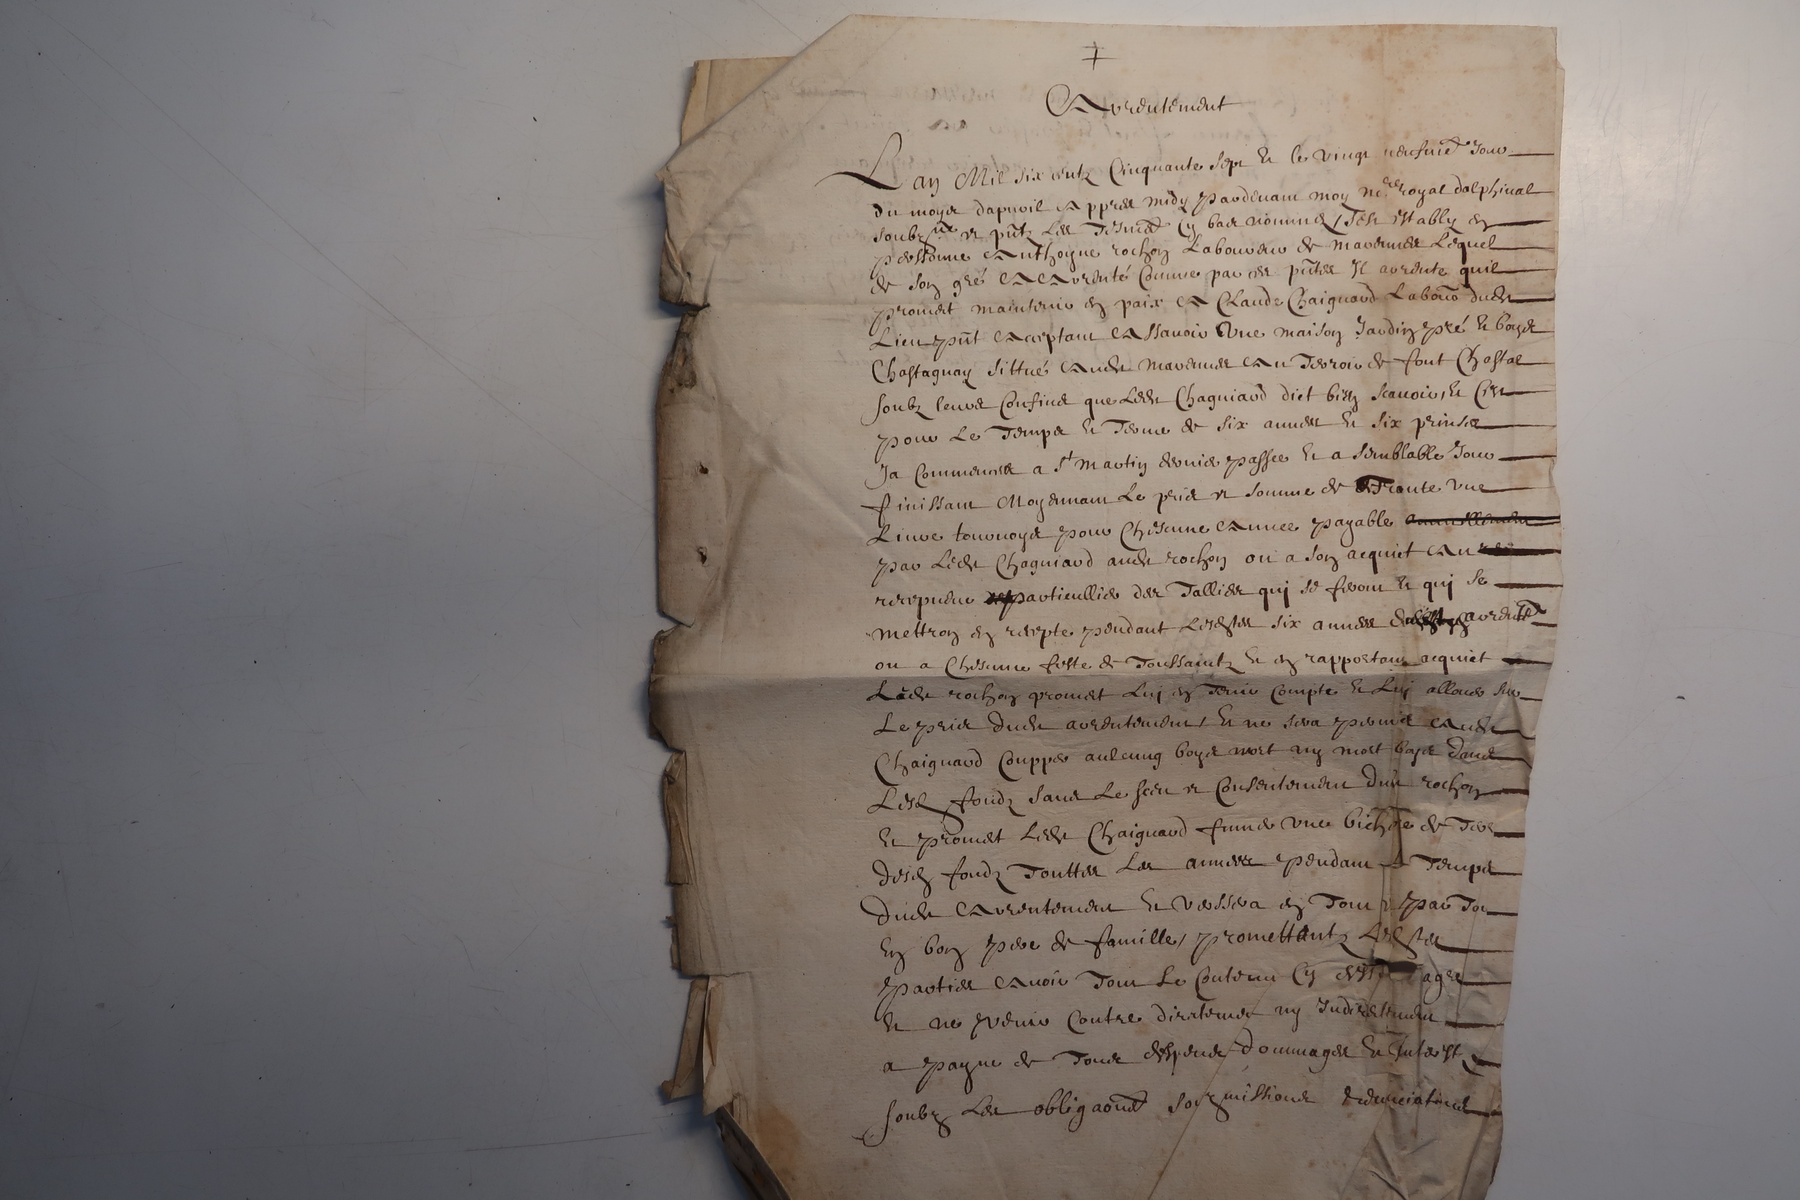 Arrentement
L'an Mil six centz Cinquante sept et le vingt neufiesme Jour
du moys d'apvril Appres midy pardevant moy no.re royal dalphinal
soubz.né et pntz les Tesmoigs cy bas nommes / s'est establiy en
personne Anthoyne rochon Laboureur de mavennes Lequel
de son gré A Arrenté Comme par ces pntes Il arrente quil
promet maintenir en paix A Claude Chaignard Labour dudt
Lieu pnt Acceptant Assavoir Une maison Jardin pré et boys
Chastagnay sittués Audt mavennes Au Terroir de font Chastas
soubz leurs Confins que Ledt Chagniard dict bien scavoir, et C'est
pour Le Temps et Terme de six annees et six prinses
Ja Commencés a St martin dernier passée et a semblable Jour
finissant Moyennant Le pris et somme de Trante une
Livre tournoys pour Chescune Annee payable annuellement
par Ledt Chagniard audt rochon ou a son acquict Au
recepveur particullier des Tallies qui se feront et qui se
mettron en recepte pendant Lesdtes six annees arrentt
ou a Chescune feste de Toussaintz et en rapportant acquict
Ledt rochon promet Luj en Tenir Compte et Luj allouer sur
Le pris dudt arrentement / et ne sera permis Audt
Chaignard Coupper aulcung boys mort ny mort boys dans
Lesd fondz sans Le sceu et Consentement dudt rochon
et promet Ledt Chaignard fumer une bichere de Terre
desd fondz Touttes Les annees pendant Le Temps
dudt Arrentement et versera en Tout et par Tout
En bon pere de famille / promettantz Lesdtes
parties Avoir Tout Le Contenu Cy dessus agreé
et ne venir Contre directement ny Indirectement
a payne de Tous despens dommages et Interestz
soubz Les obligaons soubzmissions renunciations